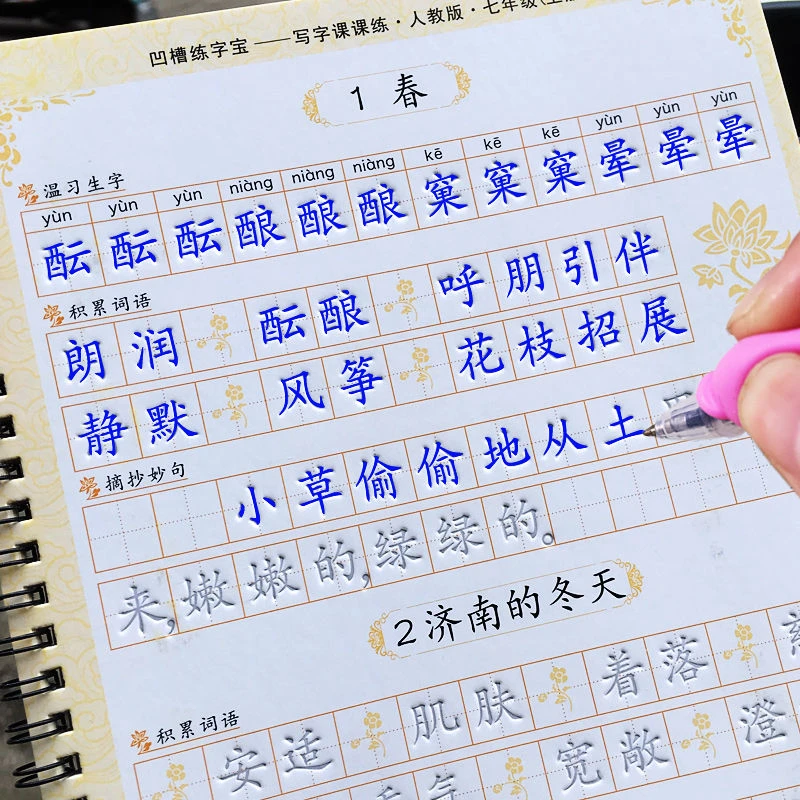 凹槽练字宝——写字课课练·人教版·七年级(上
1 春
温习生字
yùn yùn yùn niàng niàng niàng kē kē kē yùn yùn yùn
酝 酝 酝 酿 酿 酿 窠 窠 窠 晕 晕 晕
积累词语
朗润 酝酿 呼朋引伴
静默 风筝 花枝招展
摘抄妙句
小草偷偷地从土
来,嫩嫩的,绿绿的。
2 济南的冬天
积累词语
安适 肌肤 着落
宽敞 澄